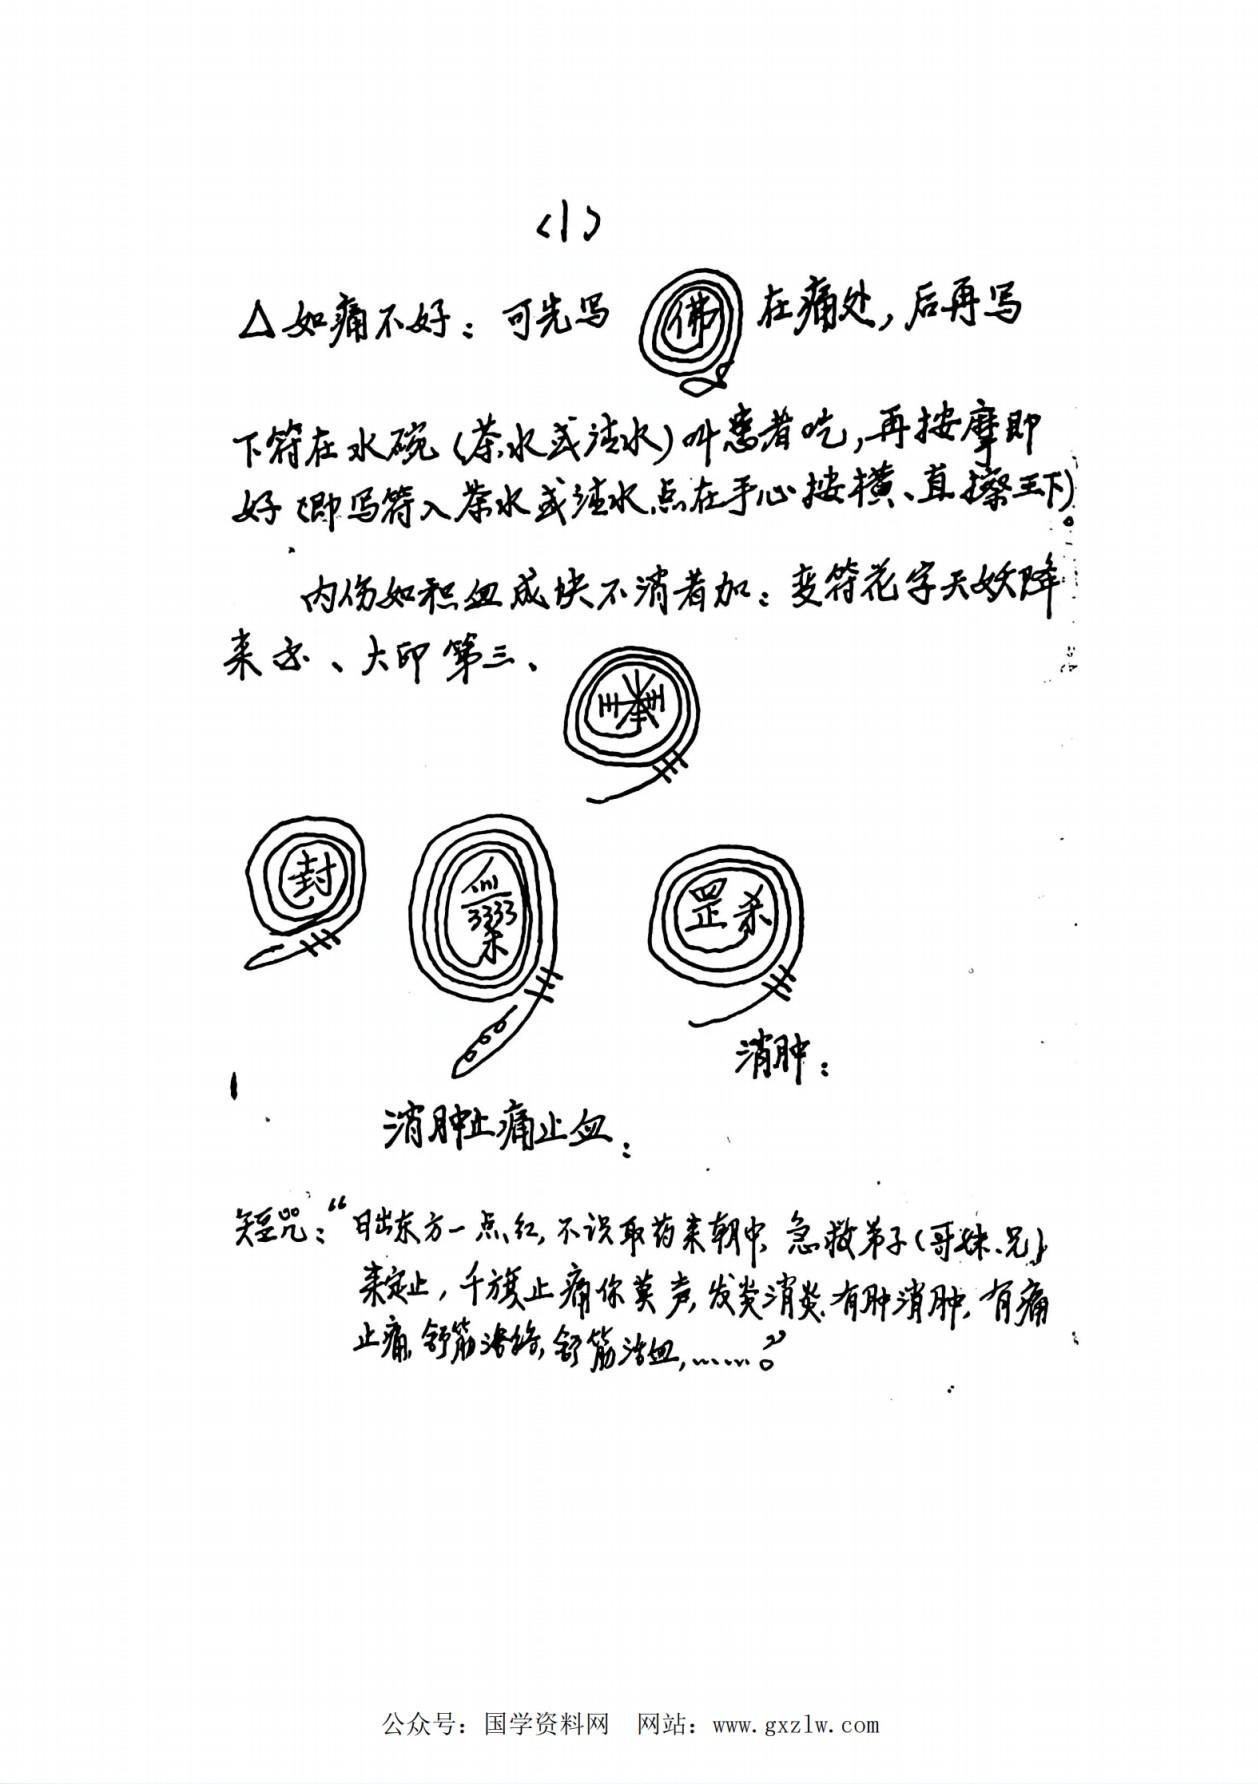 <1>
△如痛不好：可先写 佛 在痛处，后再写
下符在水碗（茶水或渣水）叫患者吃，再按摩即
好（即写符入茶水或渣水点在手心按横、直擦三下）。
内伤如积血成块不消者加：变符花字天妖降
来 、大印第三、
封
罡杀
消肿：
消肿止痛止血：
短咒：“日出东方一点红，不识取药来朝中，急救弟子（哥妹、兄）
来定止，千 止痛你莫声，发炎消炎，有肿消肿，有痛
止痛，舒筋活络，舒筋活血，……。”
公众号：国学资料网 网站：www.gxzlw.com